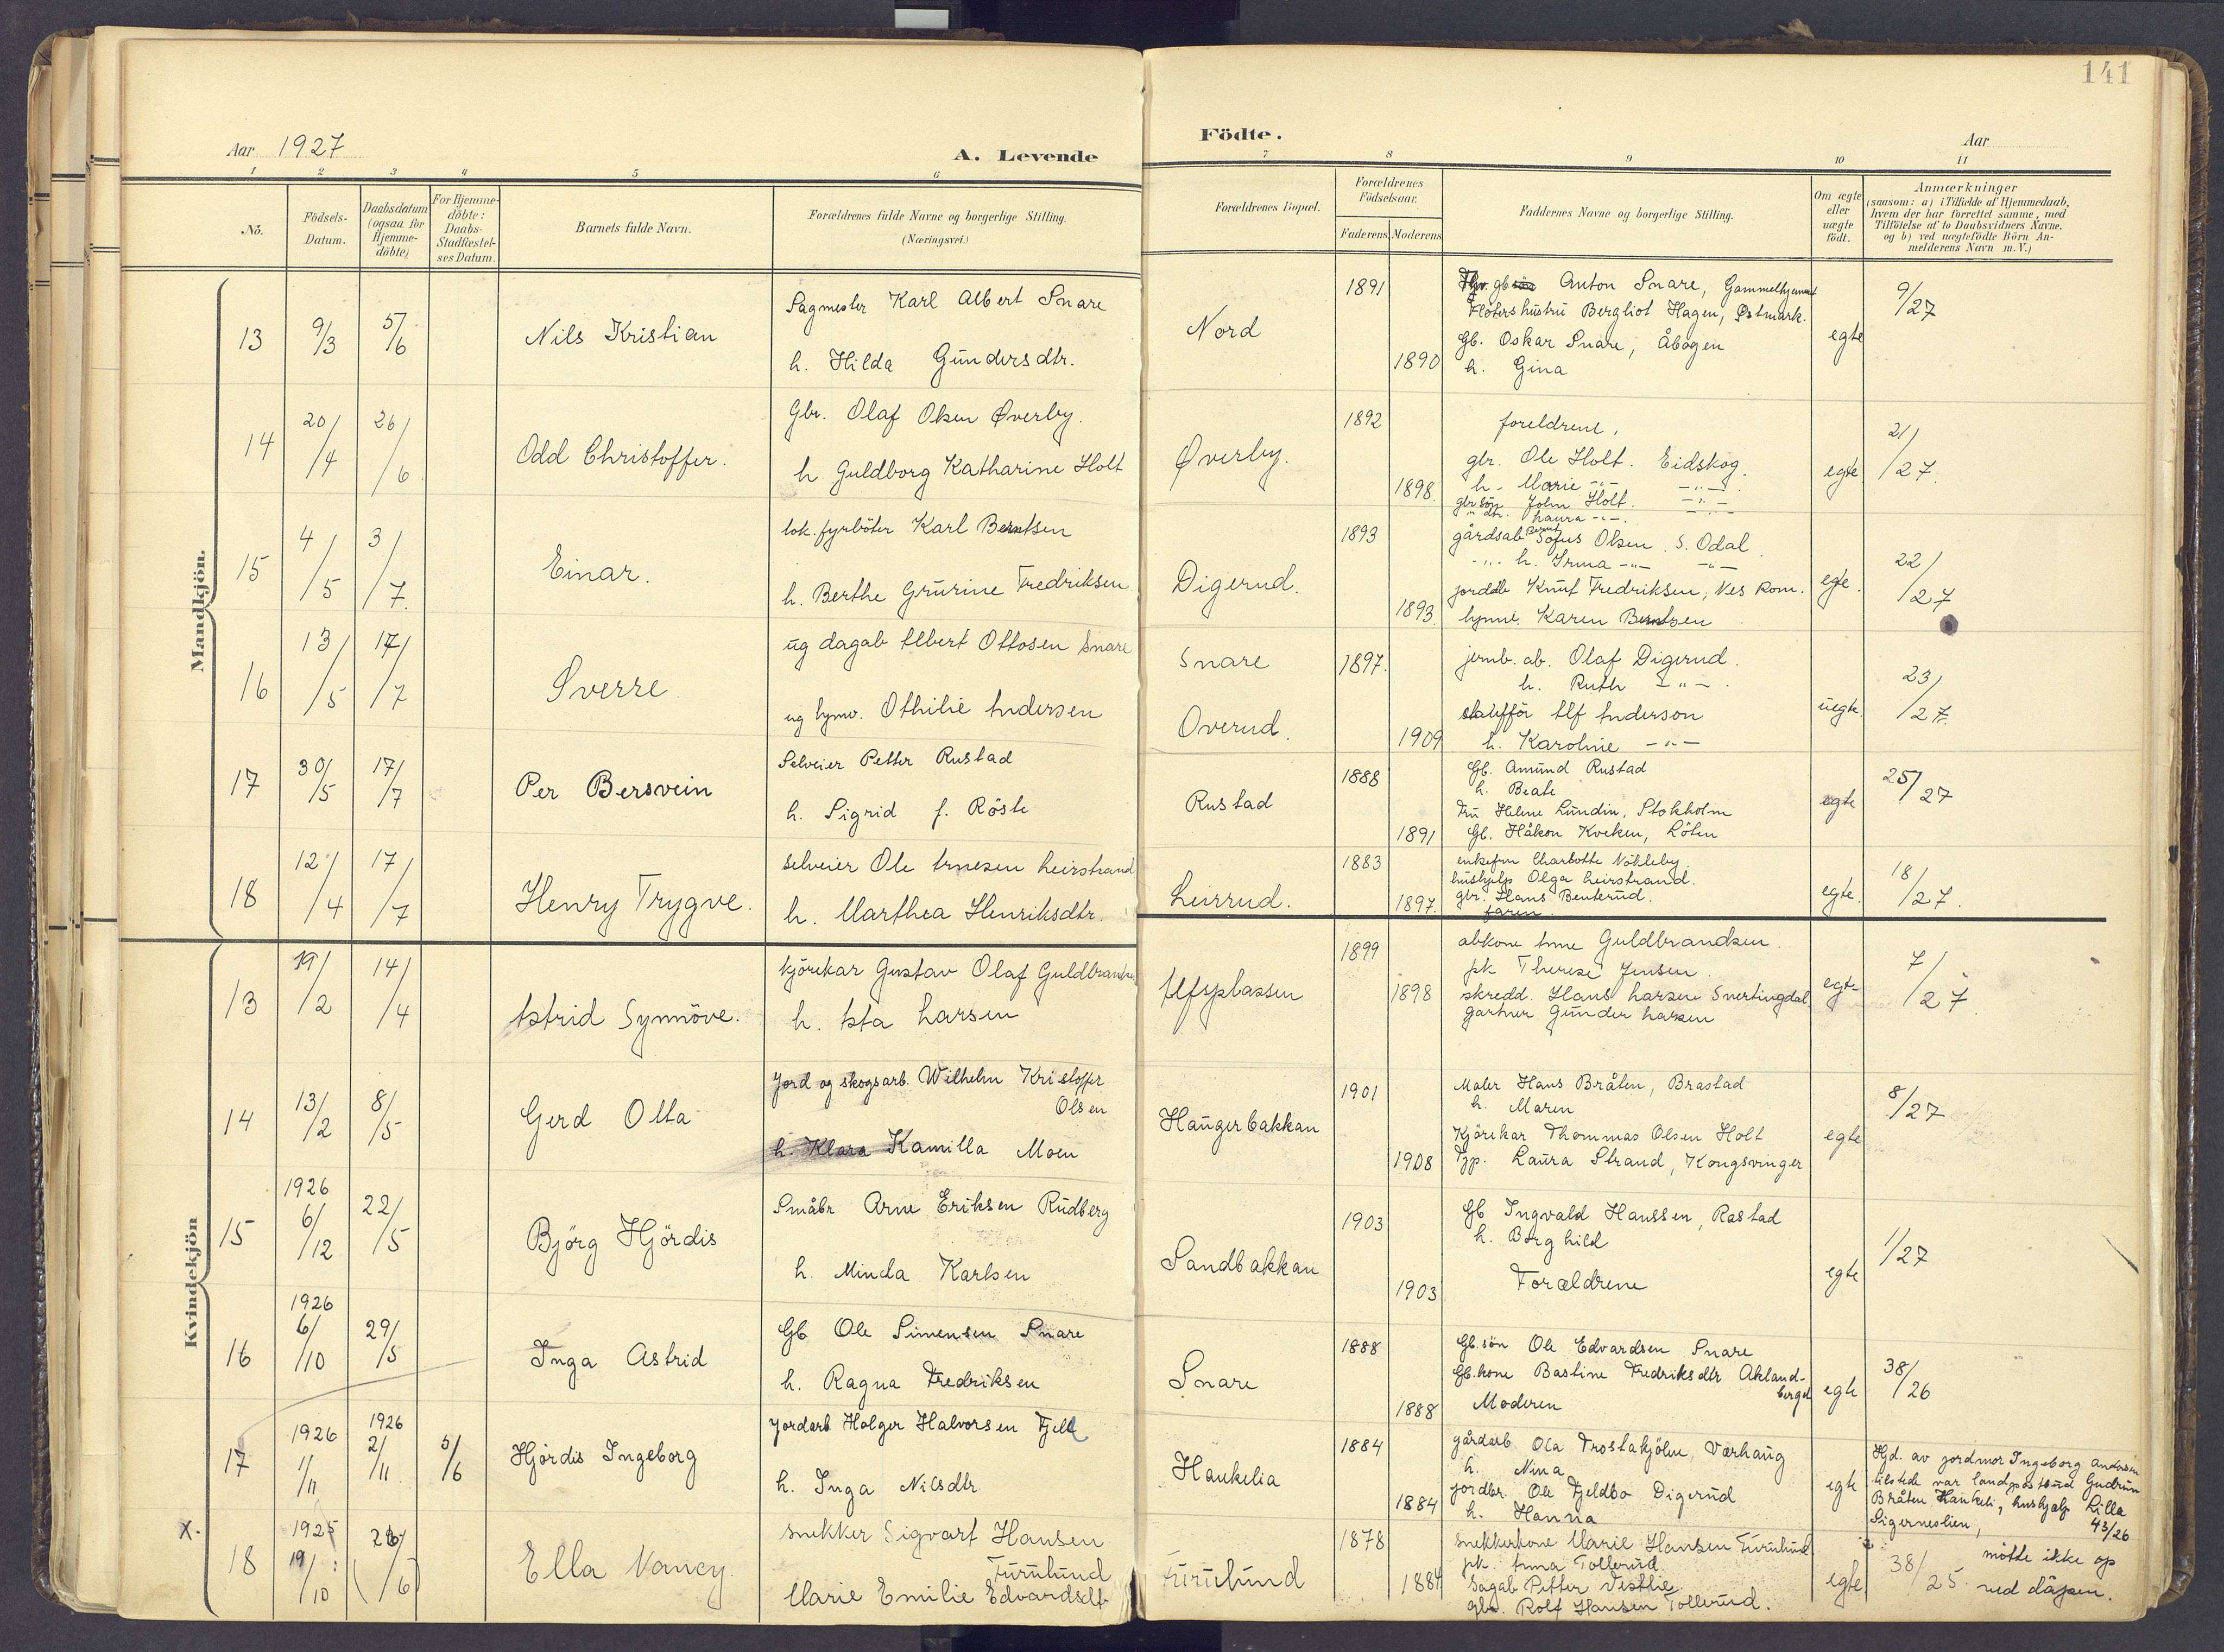 141
Aar 1927
A. Levende
Födte.
Aar
1 2 3 4 5 6 7 8 9 10 11
No.
Födsels-Datum.
Daabsdatum (ogsaa for Hjemme-döbte)
For Hjemme-döbte: Daabs-Stadfæstel-ses Datum.
Barnets fulde Navn.
Forældrenes fulde Navne og borgerlige Stilling.
(Næringsvei.)
Forældrenes Bopæl.
Forældrenes Födselsaar.
Faderens. Moderens.
Faddernes Navne og borgerlige Stilling.
Om ægte eller uægte födt.
Anmærkninger
(saasom: a) i Tilfælde af Hjemmedaab,
hvem der har forrettet samme, med
Tilföielse af to Daabsvidners Navne.
og b) ved uægtefödte Börn An-
melderens Navn m. V.)
Mandkjön.
13 9/3 5/6 Nils Kristian
Sagmester Karl Albert Snare
h. Hilda Gundersdtr.
Nord
1891
1890
gb Anton Snare, Gammelhjemmet
Fløterhustru Bergliot Hagen, Østmark.
Gb. Oskar Snare, Åbogen
h. Gina
egte
9/27
14 20/4 26/6 Odd Christoffer.
Gbr. Olaf Olsen Øverby.
h. Guldborg Katharine Holt
Øverby.
1892
1898.
foreldrene.
gbr. Ole Holt. Eidskog.
h. Marie -"- -"-
gbr.sön John Holt. -"-
" dtr. Laura -"-
egte
21/27.
15 4/5 3/7. Einar.
lok. fyrböter Karl Berntsen
h. Berthe Grurine Fredriksen
Digerud.
1893
1893.
gårdsab Bernt Sofus Olsen. S. Odal.
-"- h. Irma -"- -"-
jordab Knut Fredriksen, Nes Rom.
hjmv. Karen Berntsen
egte.
22/27
16 13/5 17/7 Sverre.
ug dagab Albert Ottosen Snare
ug hjmv. Othilie Andersen
Snare
Overud.
1897.
1909
jernb. ab. Olaf Digerud.
h. Ruth -"-.
Alf Anderson
h. Karoline -"-
uegte.
23/27.
17 30/5 17/7 Per Bersvein
Selveier Petter Rustad
h. Sigrid f. Röste
Rustad
1888
1891
Gb. Amund Rustad
h. Beate
Fru Helene Lundin, Stokholm
Gb. Håkon Kveken, Löten
egte
25/27
18 12/4 17/7 Henry Trygve.
selveier Ole Arnesen Leirstrand
h. Marthea Henriksdtr.
Leirrud.
1883
1897.
enkefru Charlotte Nöhleby.
hushjelp Olga Leirstrand.
gbr. Hans Benterud.
faren.
egte.
18/27.
Kvindekjön
13 19/2 14/4 Astrid Synnöve.
kjörekar Gustav Olaf Guldbrandsen
h. Asta Larsen
Alfsplassen
1899
1898
abkone Anne Guldbrandsen.
pk Therese Jensen.
skredd. Hans Larsen Snertingdal.
gartner Gunder Larsen
egte
7/27.
14 13/2 8/5 Gerd Otta
Jord og skogsarb. Wilhelm Kristoffer
Olsen
h. Klara Kamilla Moen
Haugerbakkan
1901
1908
Maler Hans Bråten, Brastad
h. Maren
Kjörekar Thommas Olsen Holt
Tjp. Laura Strand, Kongsvinger
egte
8/27
15 1926 6/12 22/5 Björg Hjördis
Småbr Arne Eriksen Rudberg
h. Minda Karlsen
Sandbakkan
1903
1903
Gb Ingvald Hanssen, Rastad
h. Borghild
Forældrene
egte
1/27
16 1926 6/10 29/5 Inga Astrid
Gb Ole Simensen Snare
h. Ragna Fredriksen
Snare
1888
1888
Gb.sön Ole Edvardsen Snare
Gb.kone Bastine Fredriksdtr Akland-
berget
Moderen
egte
38/26
17 1926 1/11 1926 2/11 5/6 Hjördis Ingeborg
Jordarb Holger Halvorsen Fjell
h. Inga Nilsdtr
Haukelia
1884
1884
gårdarb Ola Trostakjölen, Varhaug
h. Nina
jordbr. Ole Fjeldbo Digerud
h. Hanna
egte
Hjd. av jordmor Ingeborg Andersen
tilstede var landpostbud Gudrun
Bråten Haukeli, hushjelp Lilla
Sigerneslien, 43/26
X.
18 1925 19/10 26/6 Ella Nancy.
snekker Sigvart Hansen
Furulund
Marie Emilie Edvardsdtr
Furulund
1878
1884
snekkerkone Marie Hansen Furulund
pk. Anna Tollerud.
Sagab Petter Vestlie.
gbr. Rolf Hansen Tollerud.
egte
38/25.
mötte ikke op
ved dåpen.